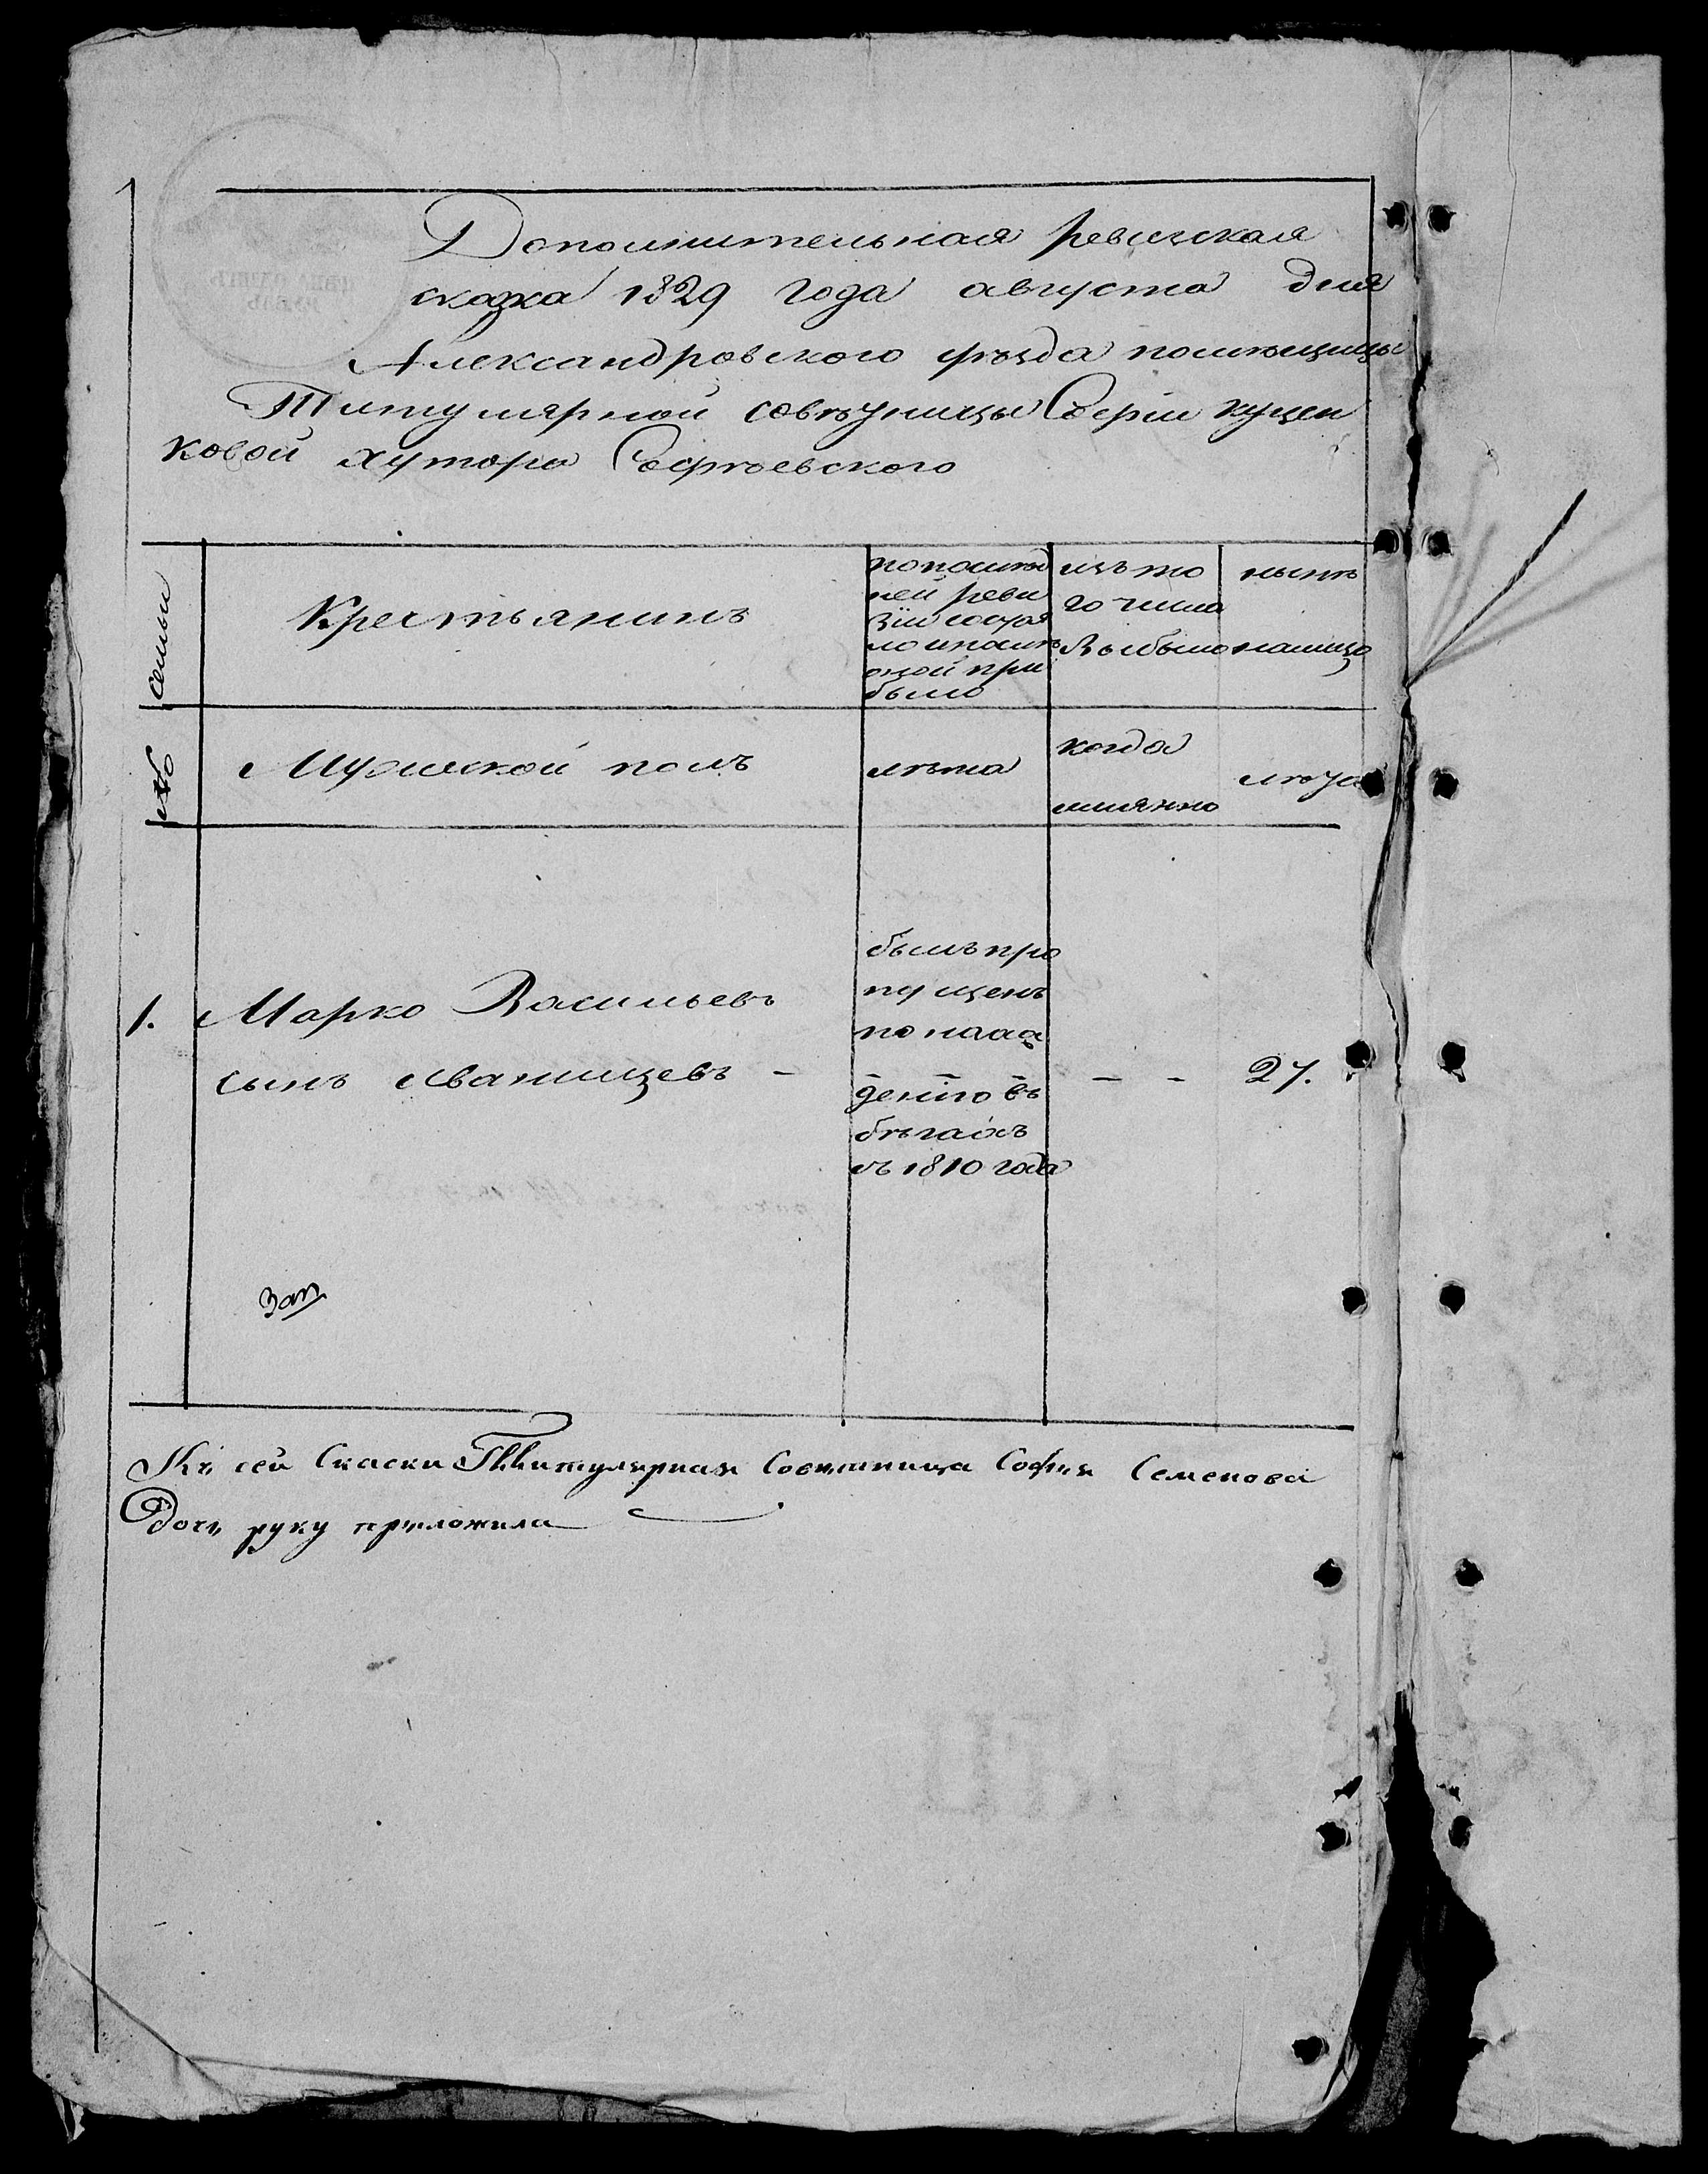 Дополнительная ревизская
сказка 1829 года августа дня
Александровского уѣзда помѣщицы
Титулярной совѣтницы Софіи Куцен
ковой хутора Софіевского
№ семьи
Крестьянинъ
по послѣд
ней реви
зіи состоя
ло и послѣ
оной при
было
изъ то
го числа
выбыло
нынѣ
налицо
Мужеской полъ
лѣта
когда
имянно
лѣта
1. Марко Васильевъ
сынъ Иванищевъ -
былъ про
пущенъ
по нахо
денію въ
бѣгахъ
съ 1810 года
- - 27.
Зап
Къ сей Скаски Титулярная Советница Софья Семенова
Дочь руку приложила